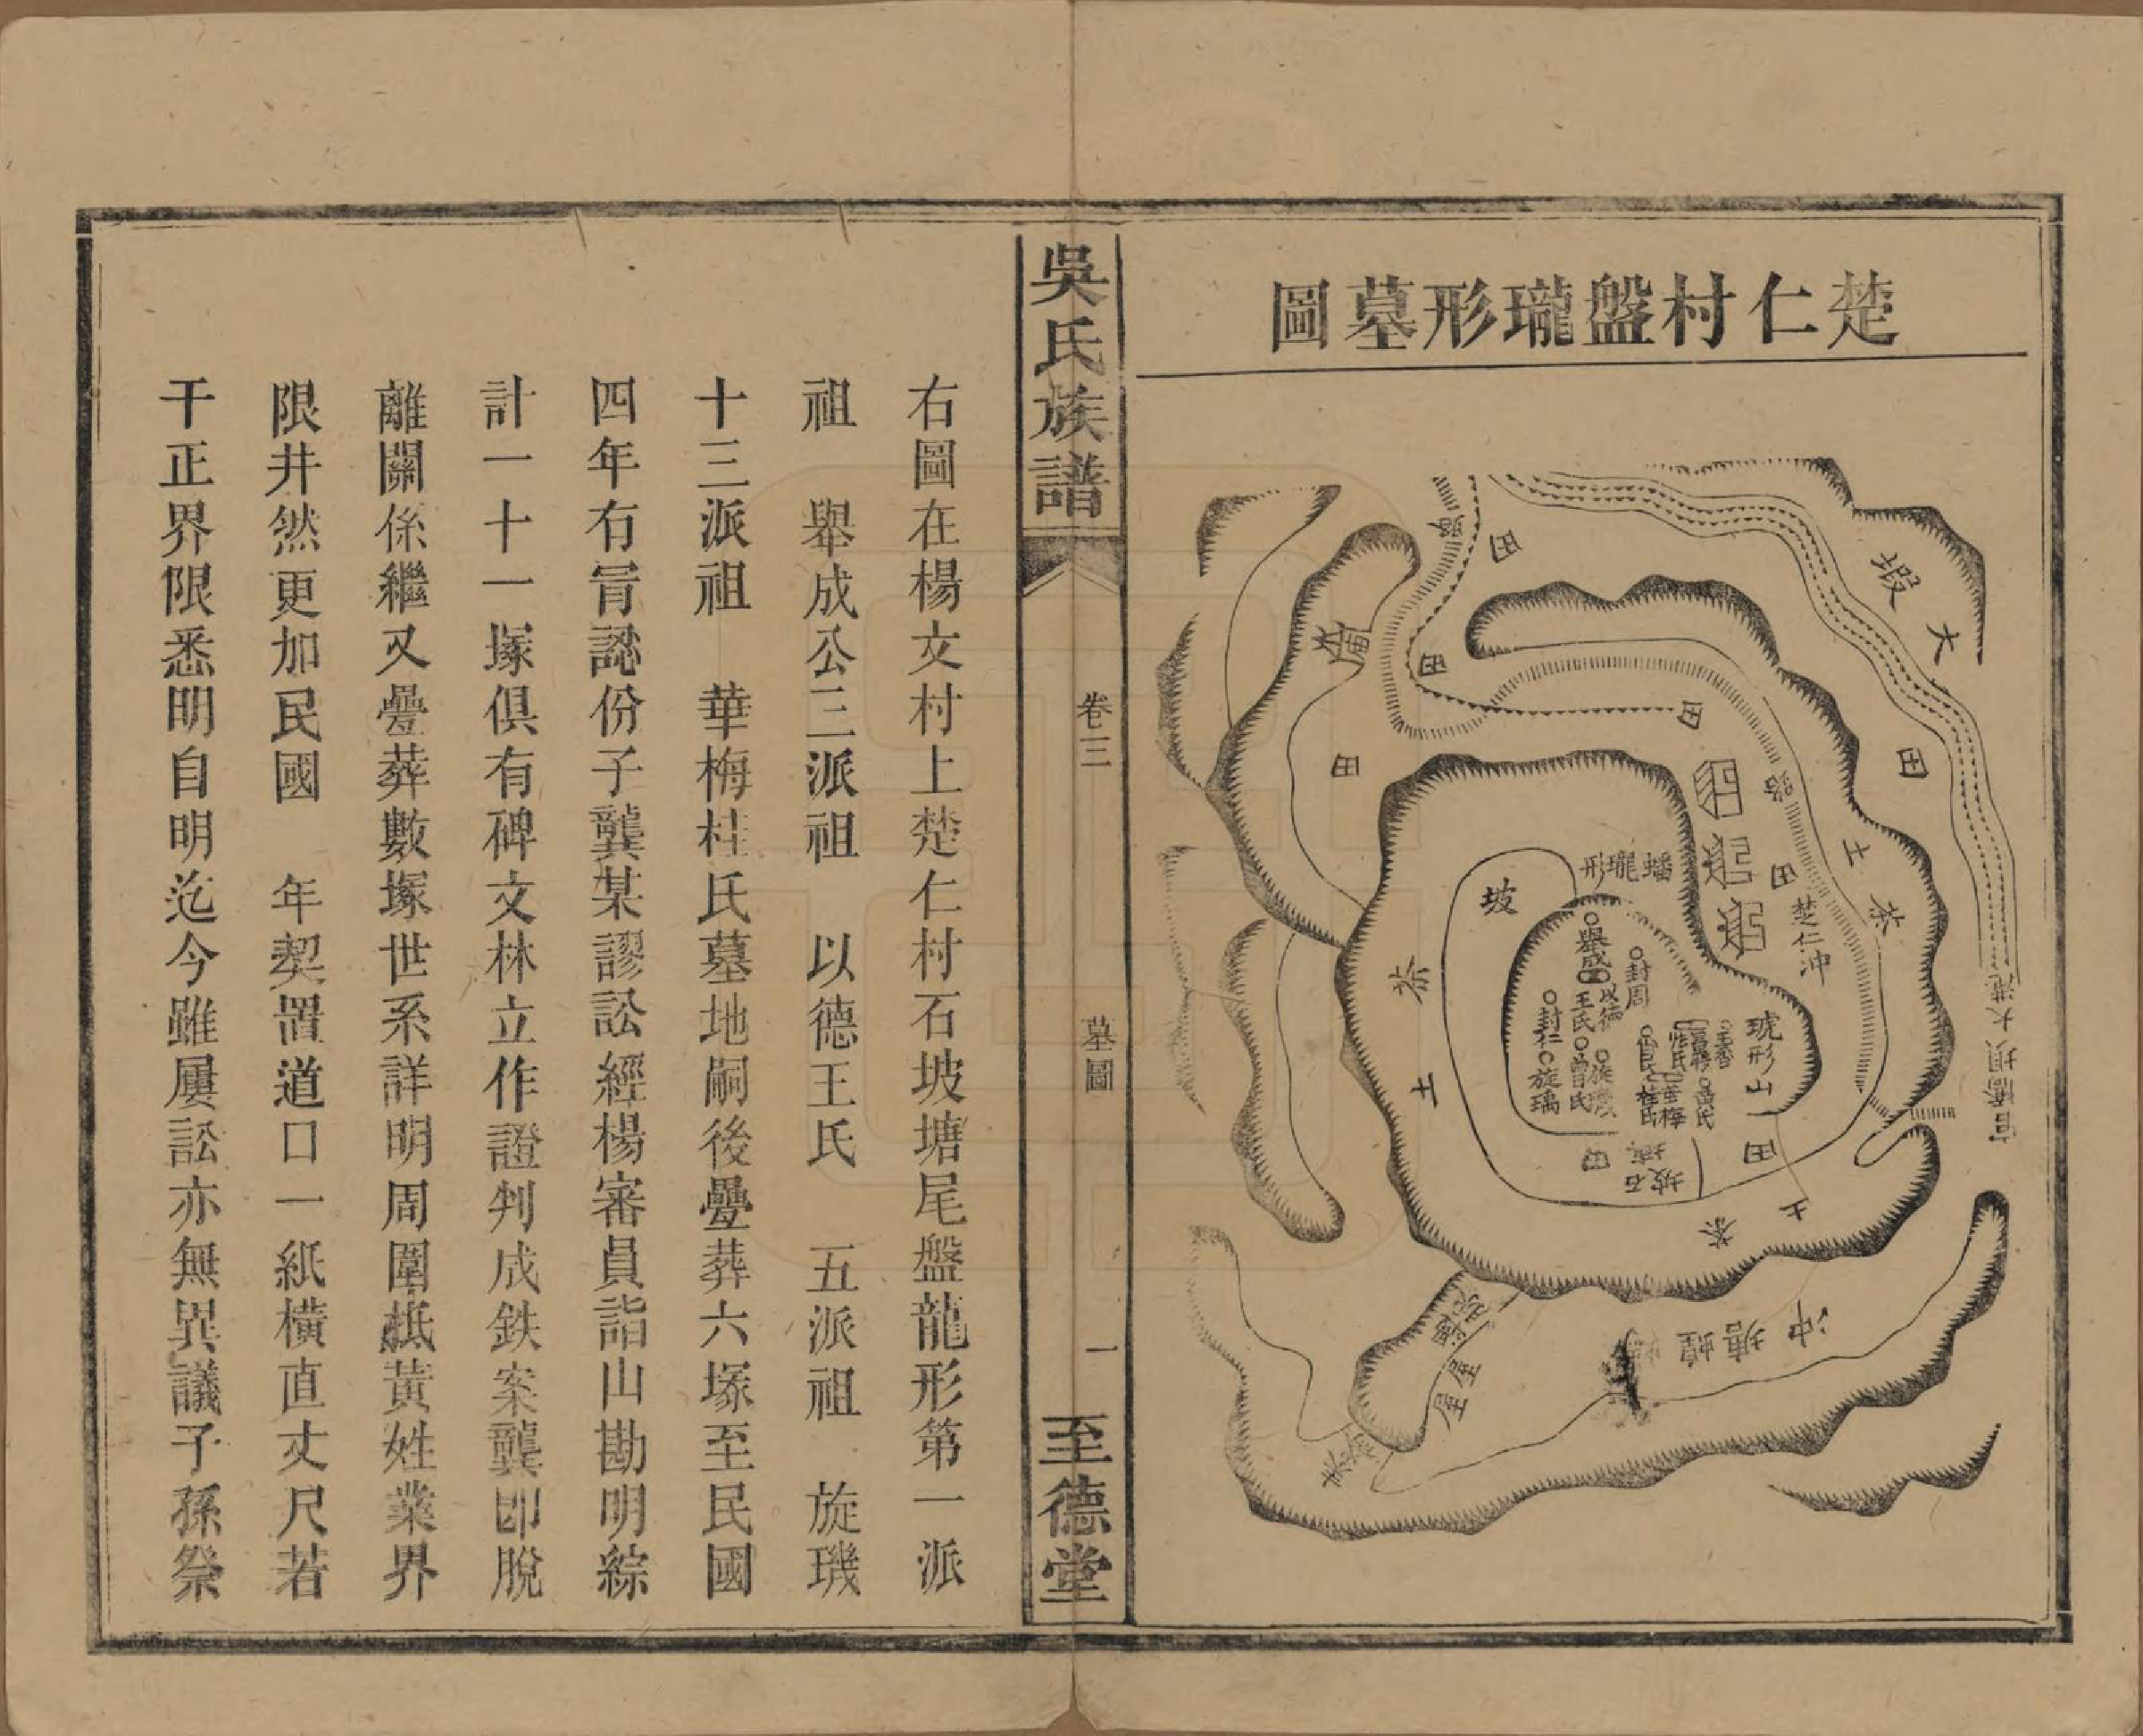 楚仁村盤瓏形墓圖
蝦
大
田
路
田
田
田
田
路
田
土
茶
楚仁冲
蟠瓏形
坡
舉成
封周
以德
王氏
曾氏
封仁
旋璣
旋璃
琥形山
桂氏
茶
土
田
田
石坡
土
茶
官橋坝大港
冲塘蝗
屋屋
吳氏族譜
卷三
墓圖
一
至德堂
右圖在楊文村上楚仁村石坡塘尾盤龍形第一派
祖　舉成公三派祖　以德王氏　五派祖　旋璣
十三派祖　華梅桂氏墓地嗣後疊葬六塚至民國
四年有冐認份子龔某謬訟經楊審員詣山勘明綜
計一十一塚俱有碑文林立作證判成鉄案龔即脫
離關係繼又疊葬數塚世系詳明周圍抵黃姓業界
限井然更加民國　年契置道口一紙橫直丈尺若
干正界限悉明自明迄今雖屢訟亦無異議子孫祭